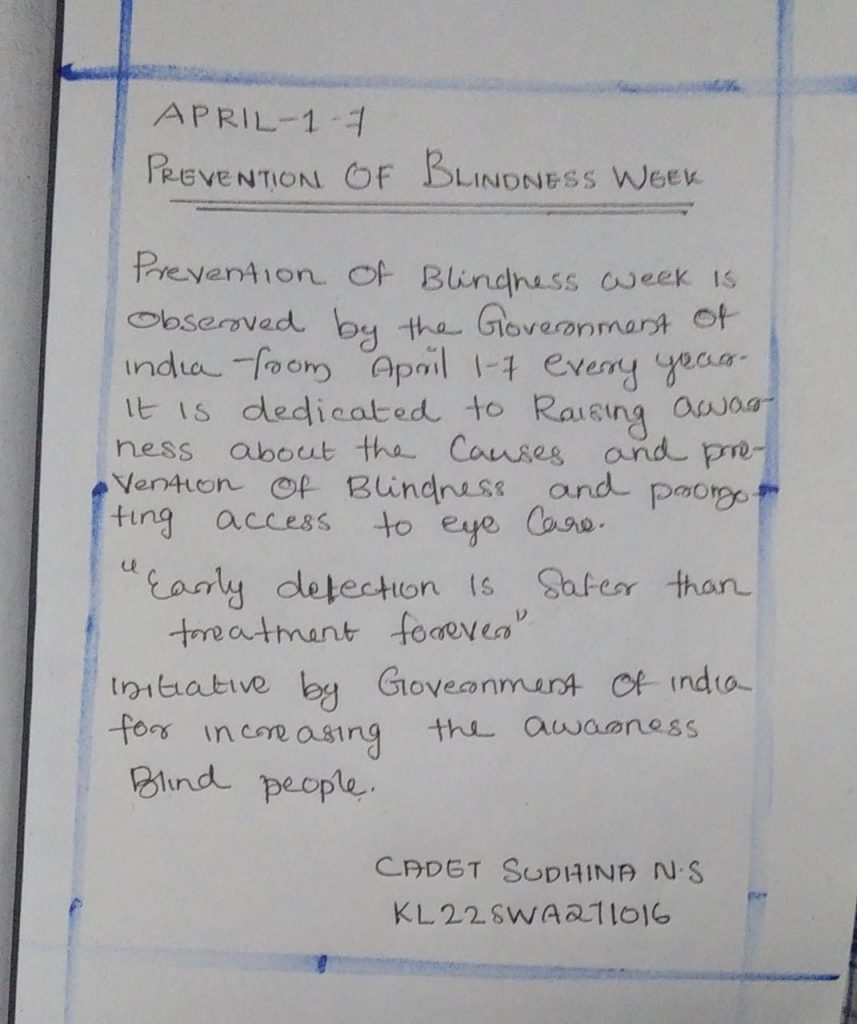 APRIL-1-7
PREVENTION OF BLINDNESS WEEK
Prevention Of Blindness week is
Observed by the Government Of
india from April 1-7 every year.
It is dedicated to Raising awar
ness about the Causes and pre-
vention Of Blindness and promo-
ting access to eye Care.
"Early detection is Safer than
treatment forever"
initiative by Government Of india
for increasing the awarness
Blind people.
CADET SUDHINA N.S
KL22SWA271016